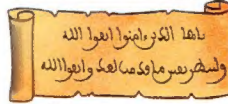 يأيها الذين امنوا اتقوا الله
ولتنظر نفس ما قدمت لغد واتقوا الله